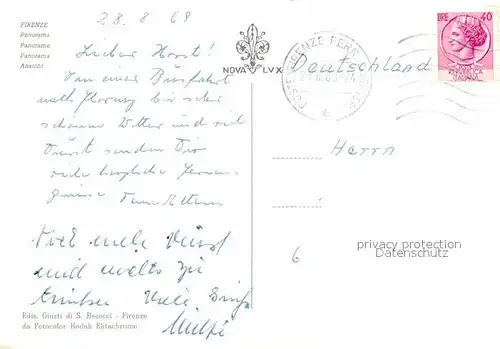 28.8.68
FIRENZE
Panorama
Panorame
Panorama
Ansicht
Lieber Horst!
Von einer Busfahrt
nach Florenz bei sehr
schönem Wetter und viel
Durst senden Dir
viele herzliche
Grüsse Deine Eltern
Viel mehr Durst
und nichts zu
trinken Viele
NOVA LVX
FIRENZE FERR
LIRE 40
Deutschland
Herrn
6
privacy protection
Datenschutz
Ediz. Giusti di S. Becocci - Firenze
da Fotocolor Kodak Ektachrome